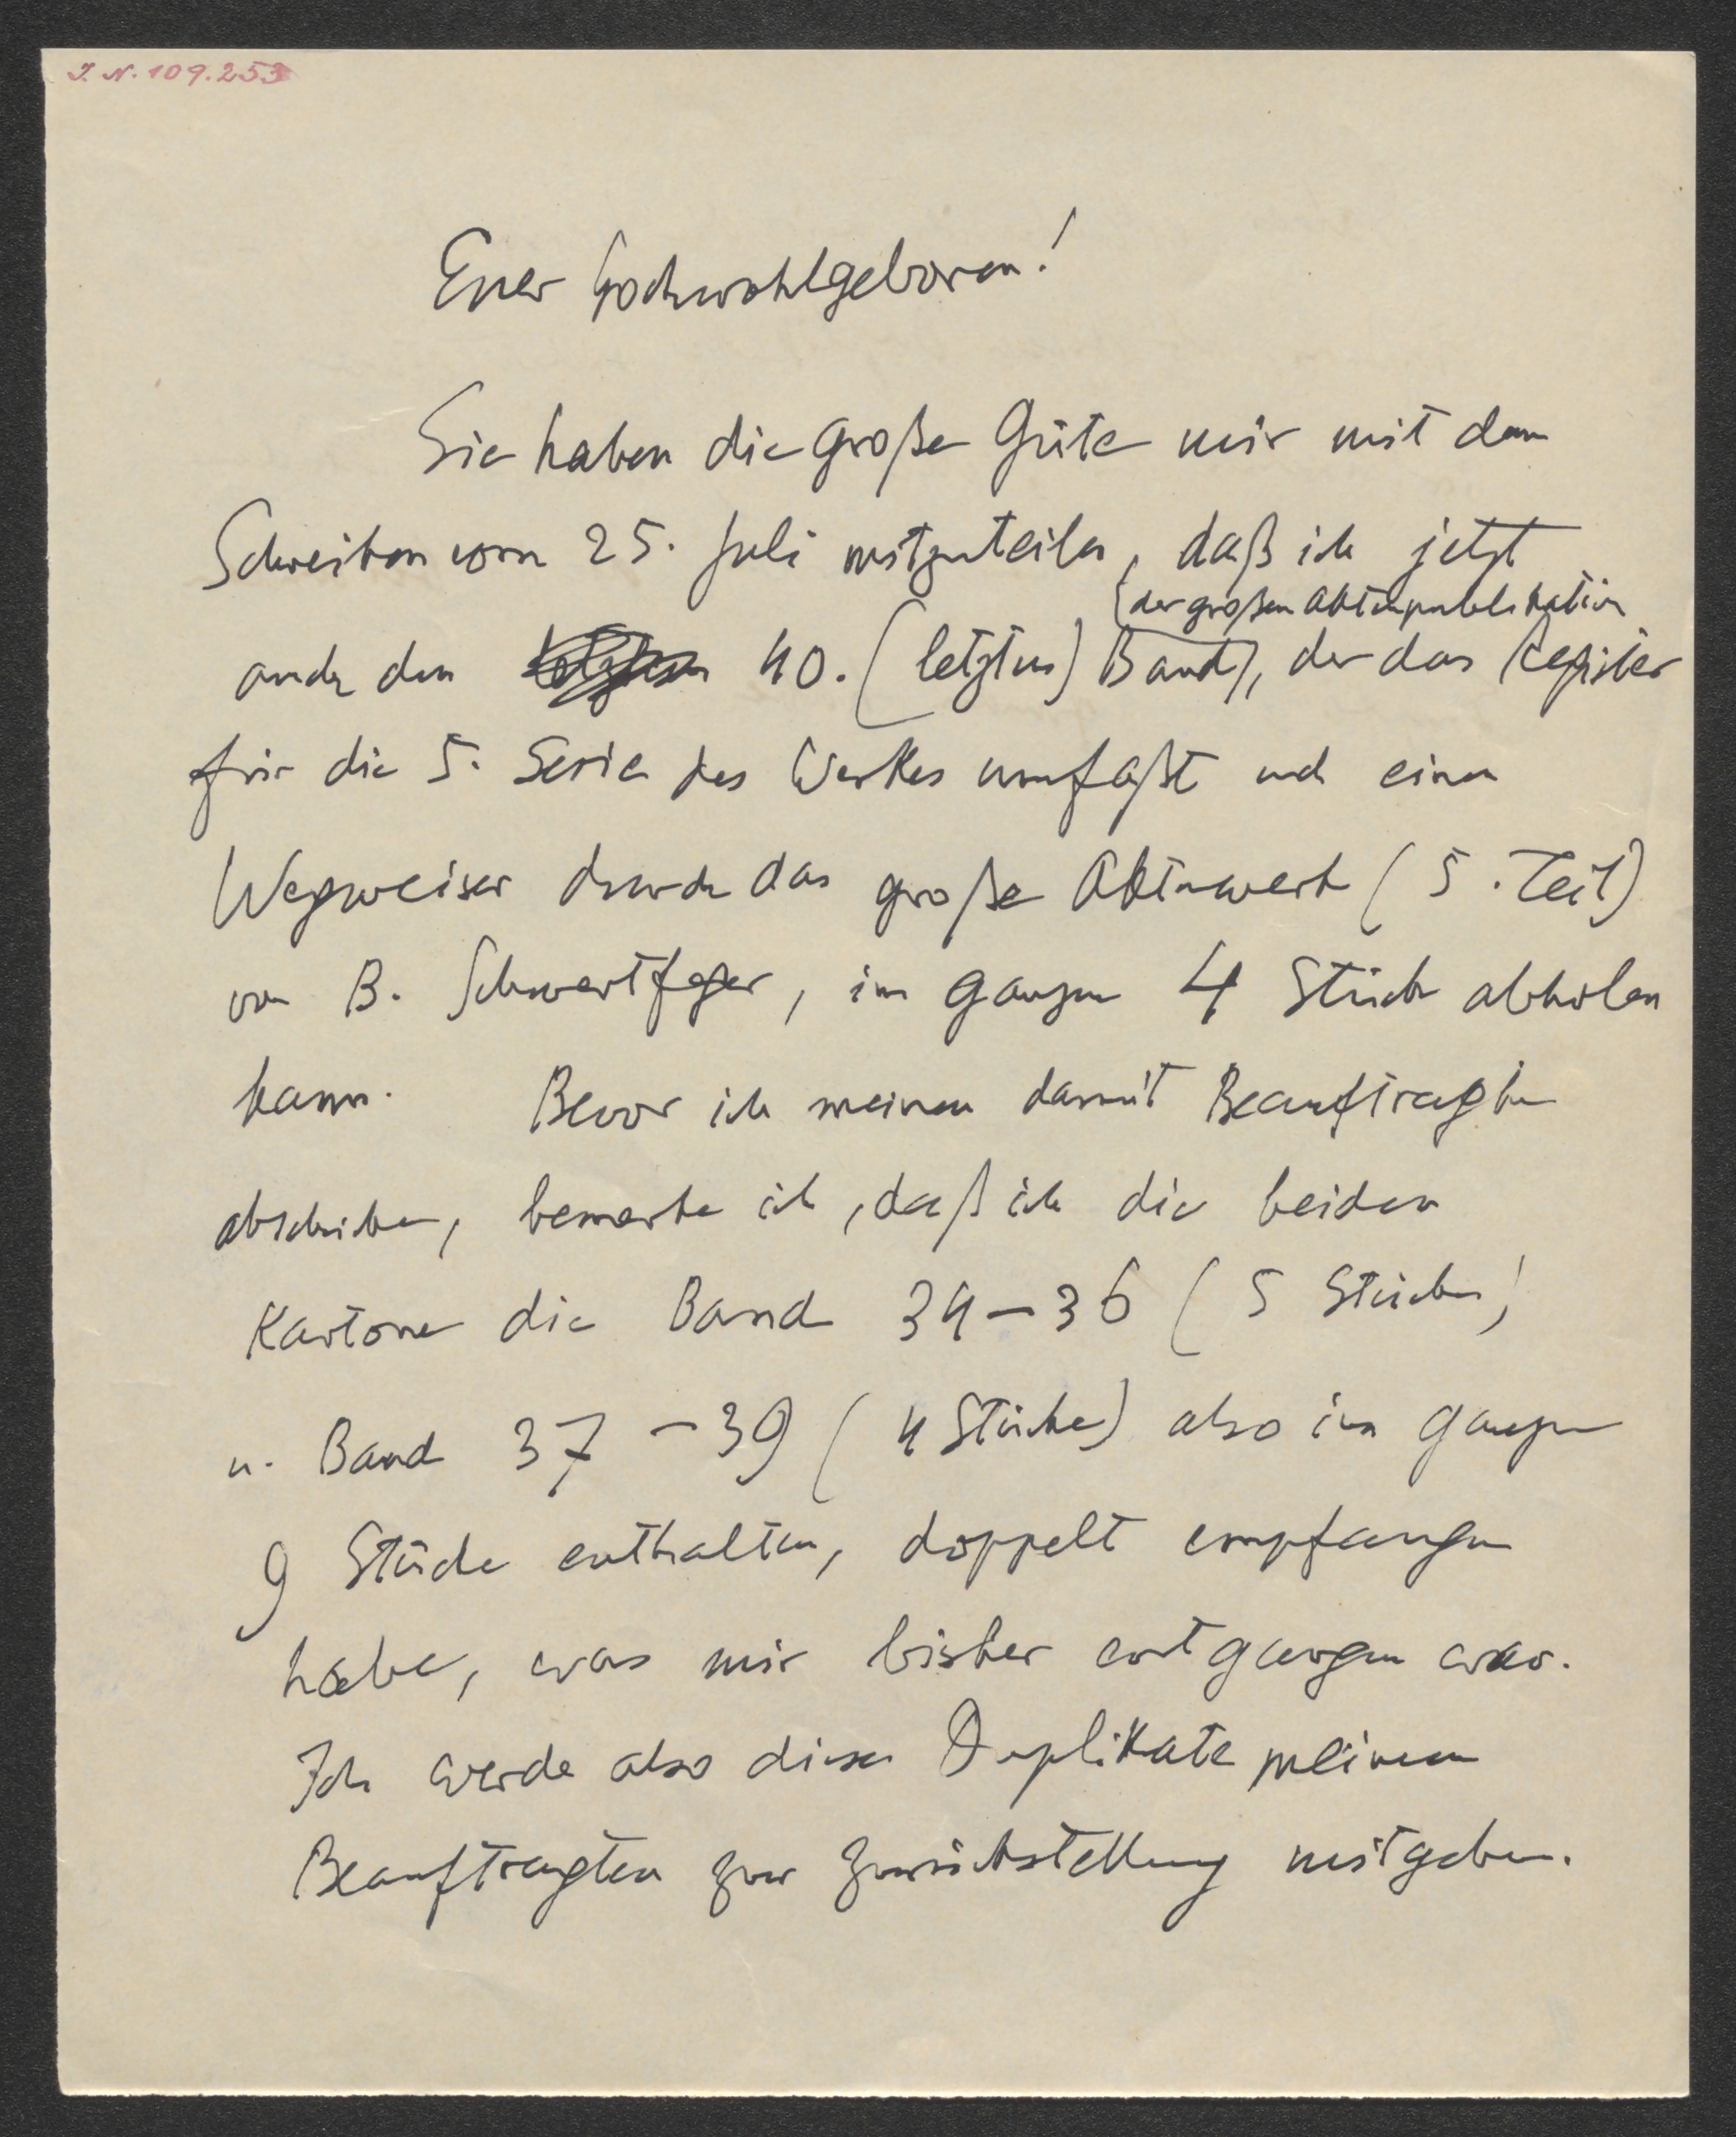 I. N. 109.253
Euer Hochwohlgeboren!
Sie haben die große Güte mir mit dem
Schreiben vom 25. Juli mitzuteilen, daß ich jetzt
der großen Aktenpublikation
auch den 40. (letzten) Band, der das Register
für die 5. Serie des Werkes umfaßt und einen
Wegweiser durch das große Aktenwerk (5. Teil)
von B. Schwertfeger, im ganzen 4 Stück abholen
kann. Bevor ich meinen damit Beauftragten
abschicke, bemerke ich, daß ich die beiden
Kartone die Band 34–36 (5 Stücke)
u. Band 37–39 (4 Stücke) also im ganzen
9 Stücke enthalten, doppelt empfangen
habe, was mir bisher entgangen war.
Ich werde also diese Duplikate meinem
Beauftragten zur Zurückstellung mitgeben.